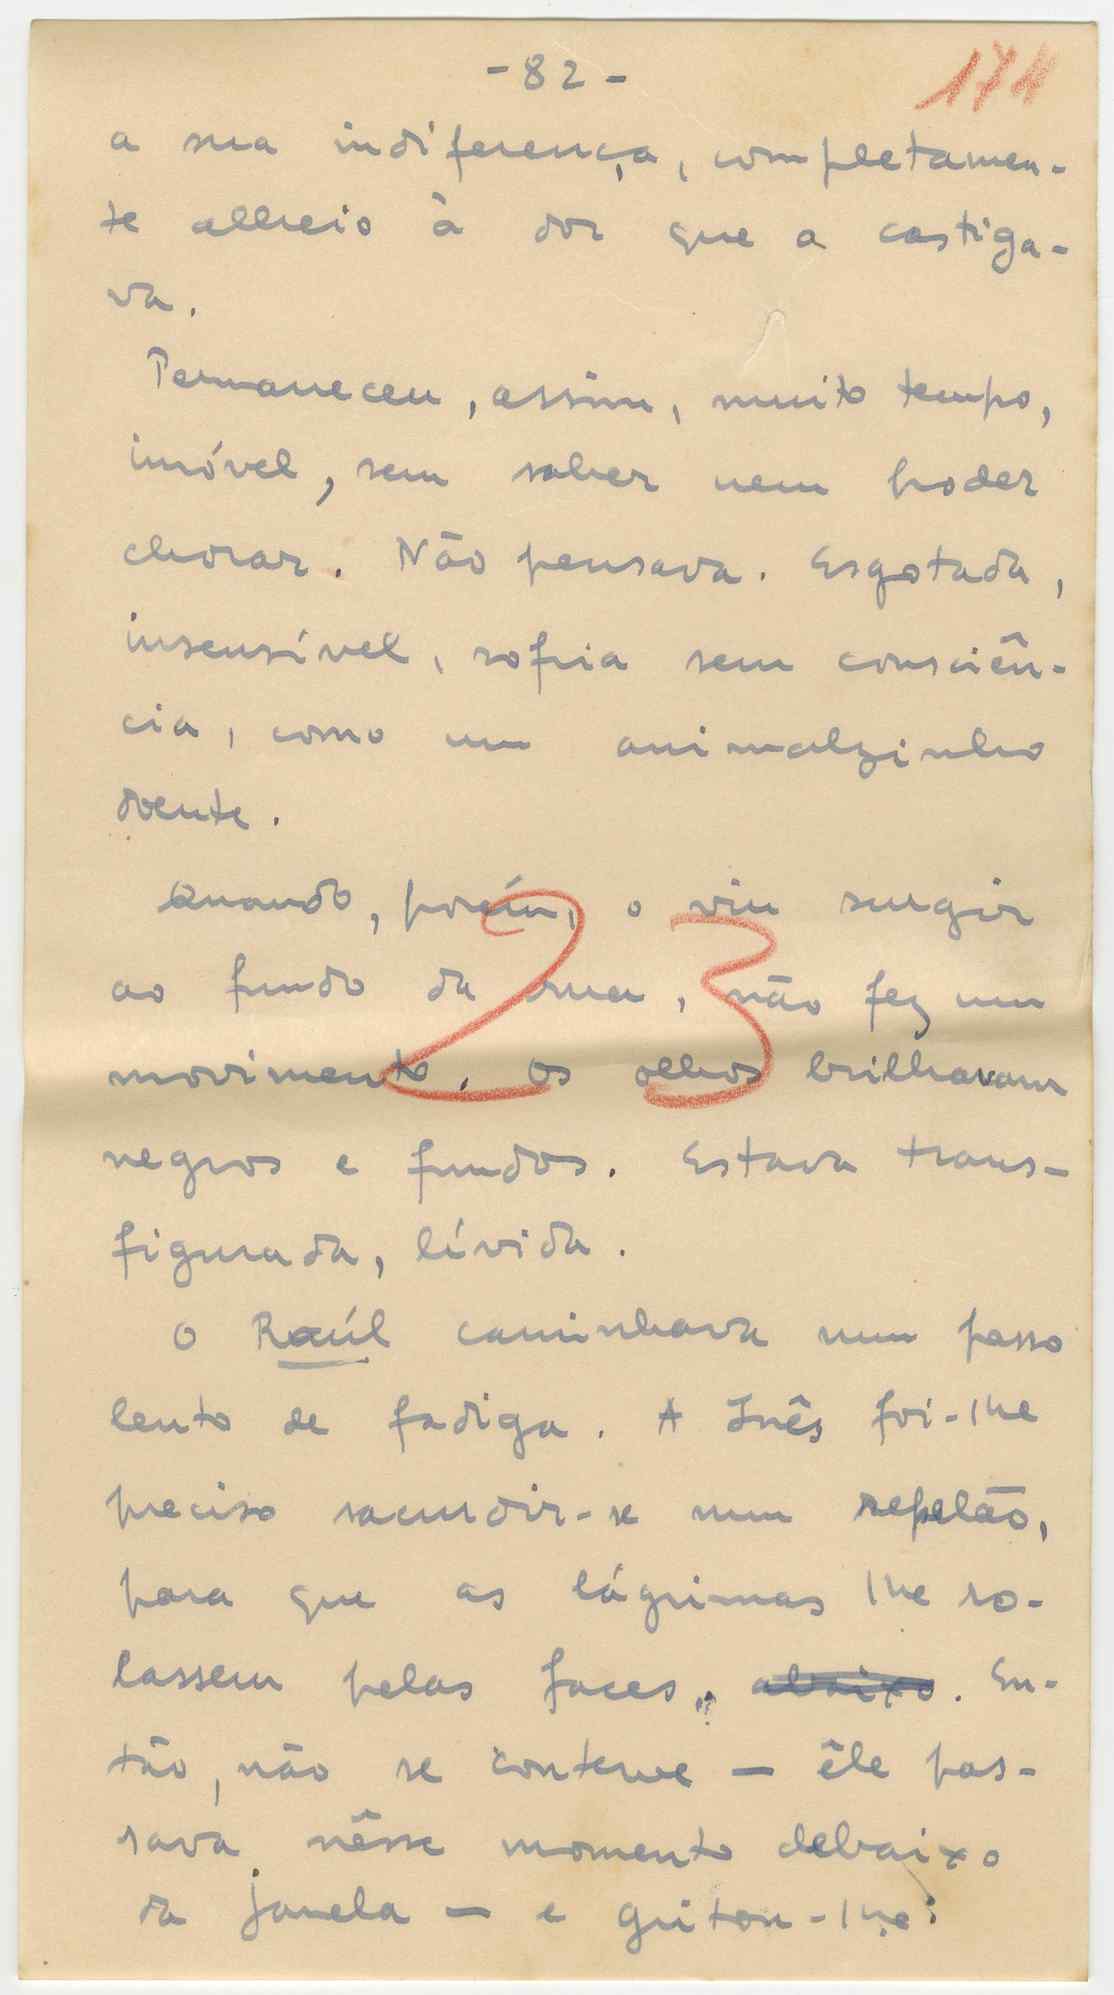 - 82 -
174
a sua indiferença, completamen-
te alheio à dor que a castiga-
va.
Permaneceu, assim, muito tempo,
imóvel, sem saber nem poder
chorar. Não pensava. Esgotada,
insensível, sofria sem consciên-
cia, como um animalzinho
doente.
Quando, porém, o viu surgir
ao fundo da rua, não fez um
23
movimento. Os olhos brilhavam
negros e fundos. Estava trans-
figurada, lívida.
O Raúl caminhava num passo
lento de fadiga. A Inês foi-lhe
preciso sacudir-se num repelão,
para que as lágrimas lhe ro-
lassem pelas faces, abaixo. En-
tão, não se conteve — êle pas-
sava nêsse momento debaixo
da janela — e gritou-lhe: